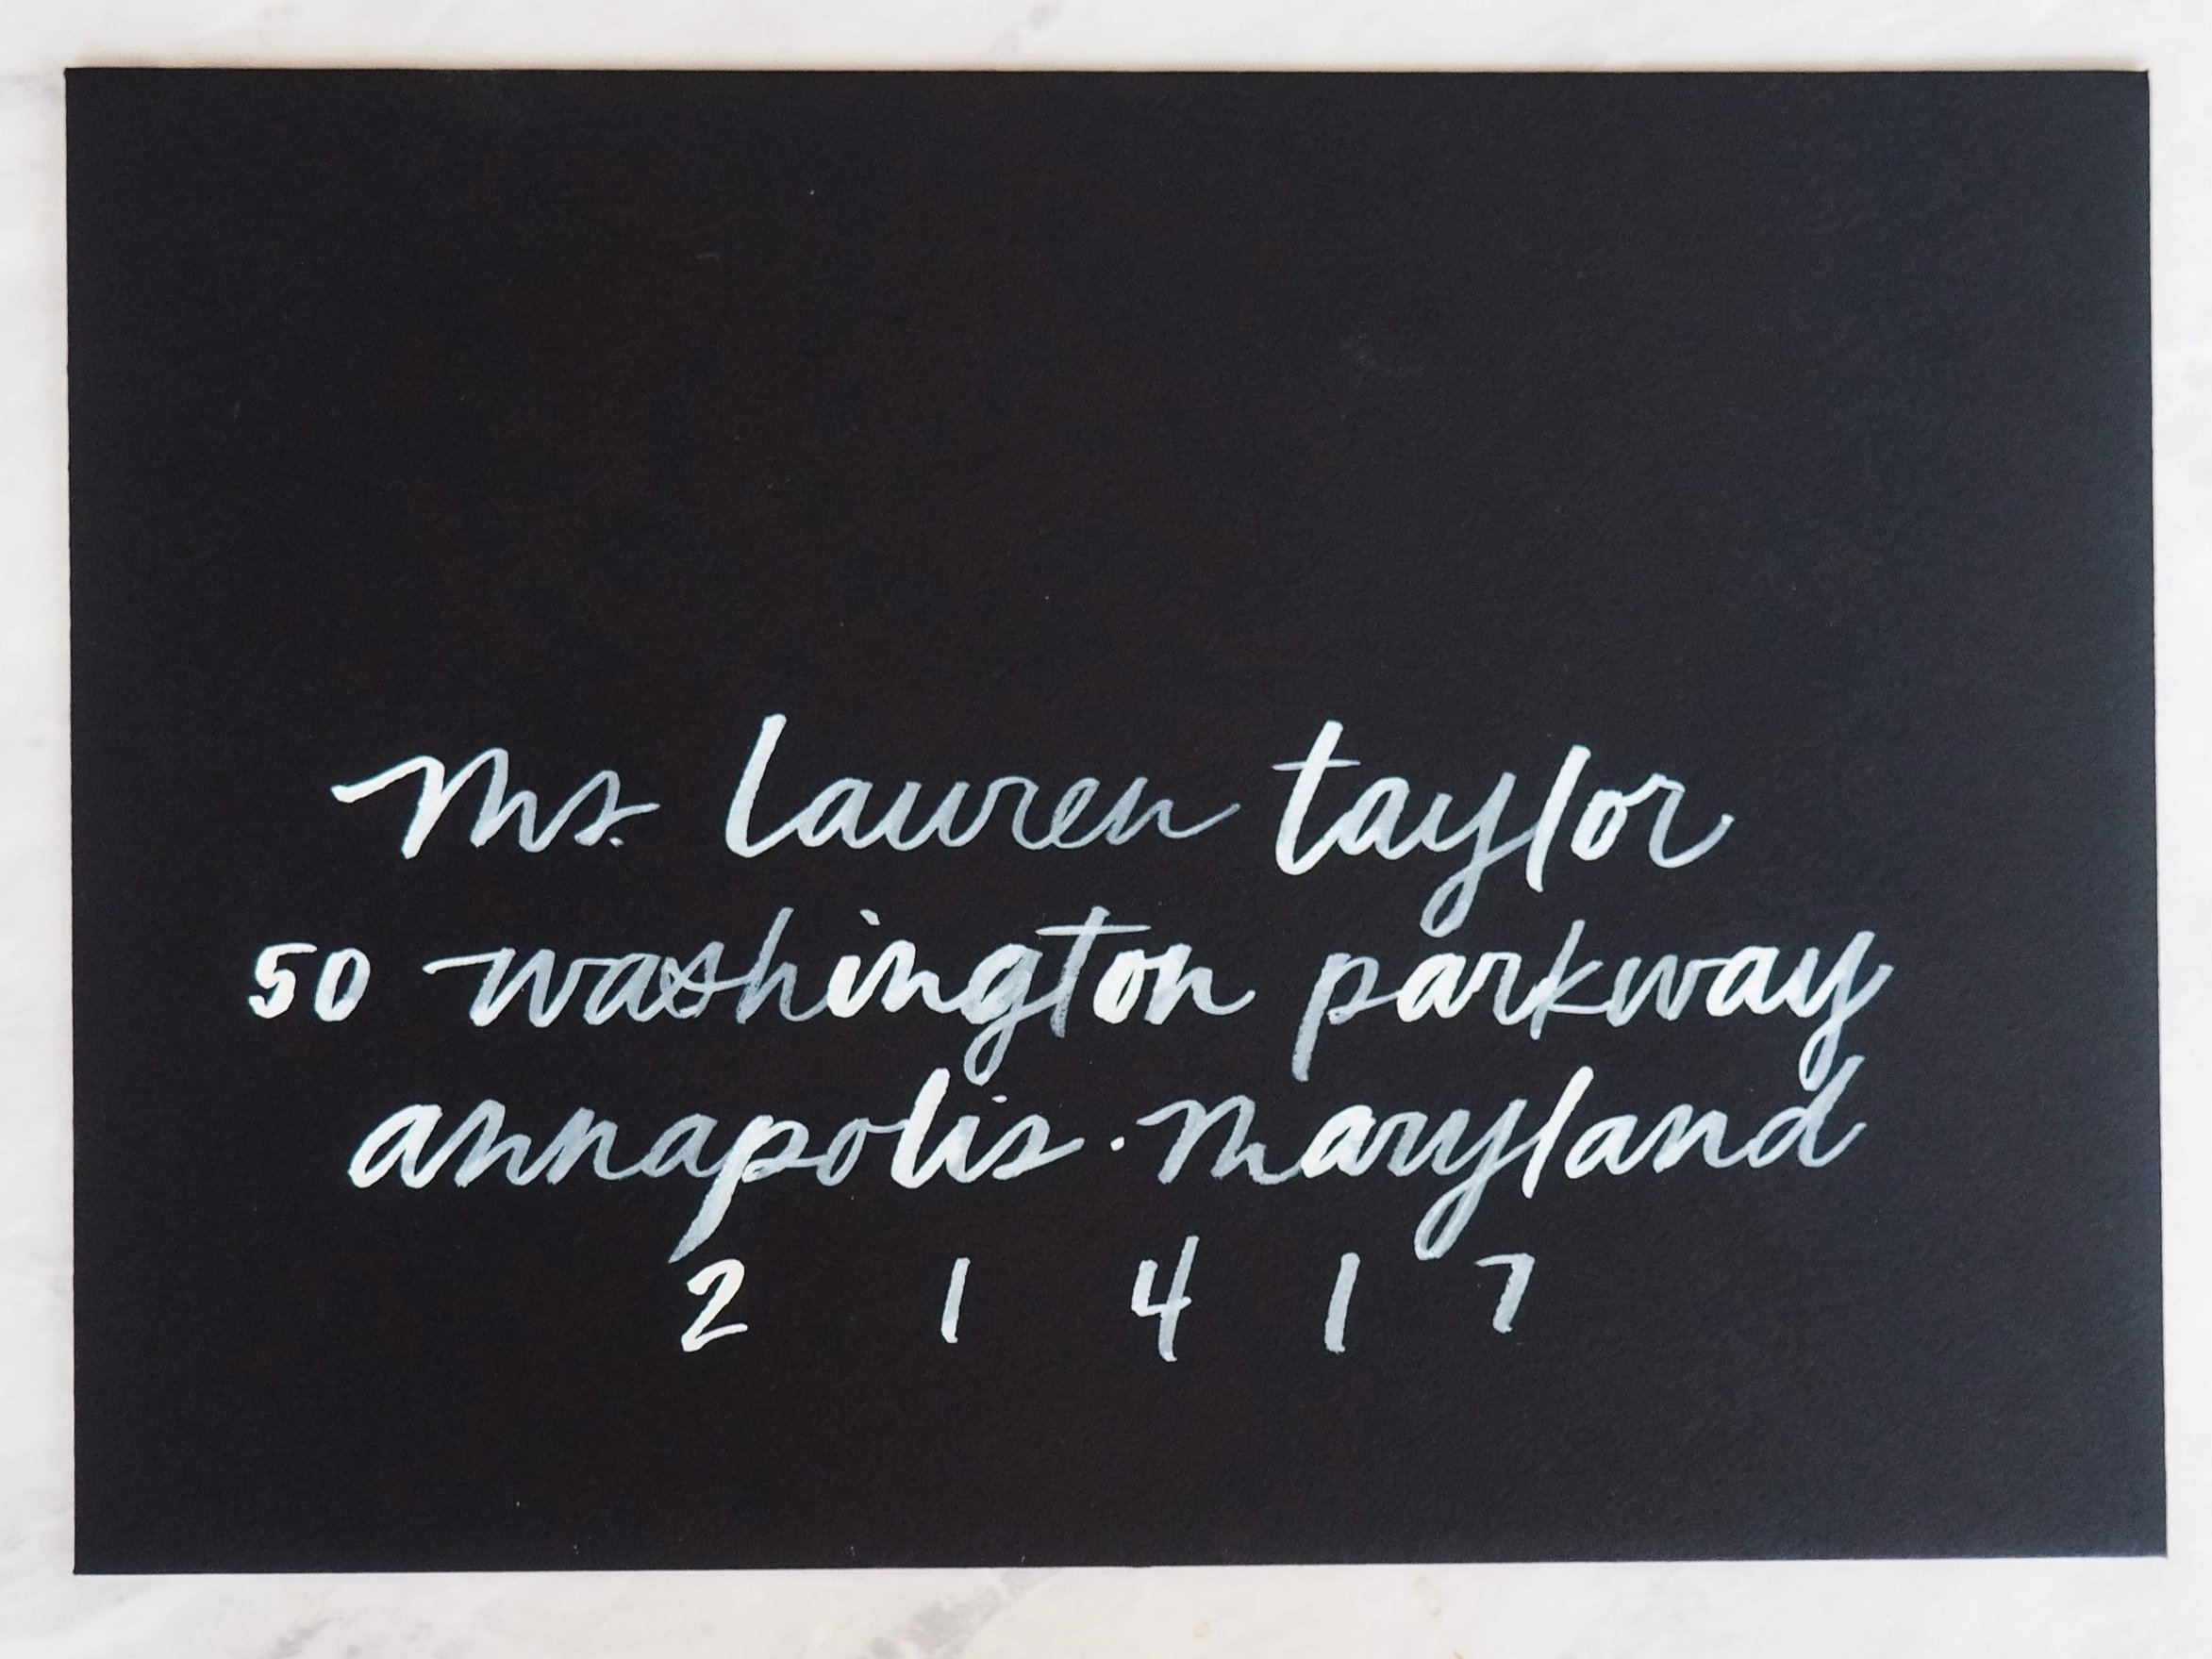 Ms. Lauren taylor
50 washington parkway
annapolis · Maryland
2 1 4 1 7